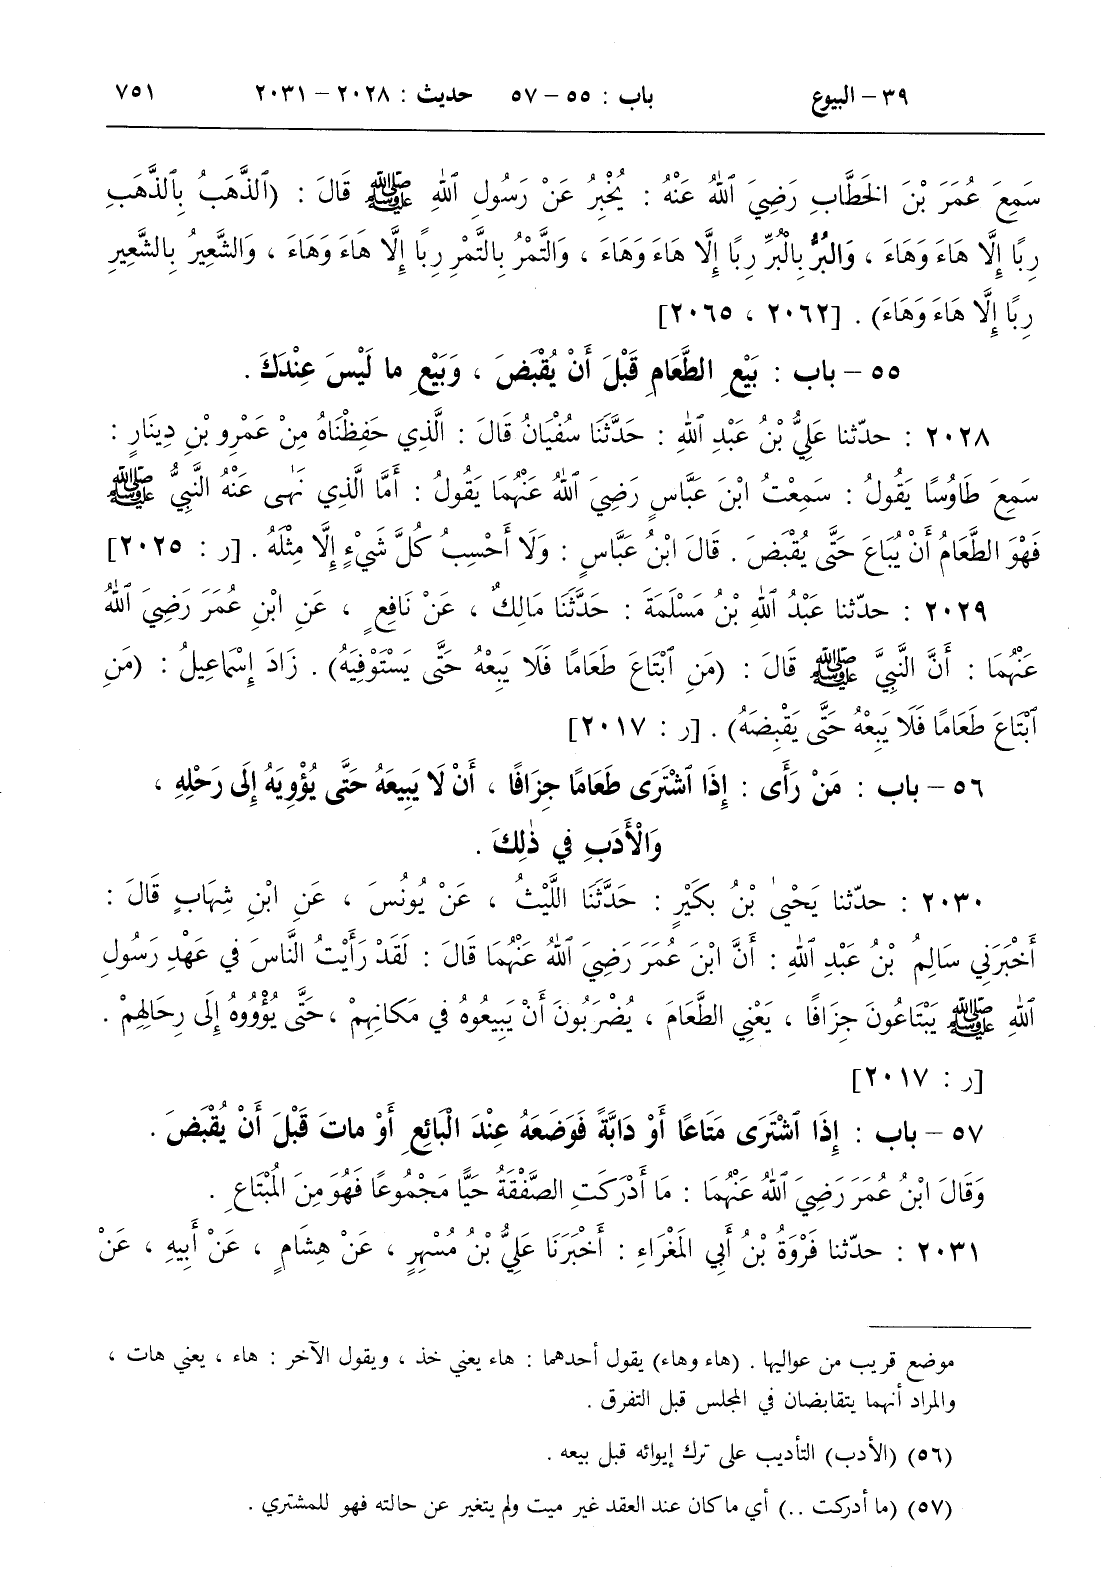 ٣٩ – البيوع باب : ٥٥ – ٥٧ حديث : ٢٠٢٨ – ٢٠٣١ ٧٥١
سَمِعَ عُمَرَ بْنَ الخَطَّابِ رَضِيَ ٱللهُ عَنْهُ : يُخْبِرُ عَنْ رَسُولِ ٱللهِ ﷺ قَالَ : (ٱلذَّهَبُ بِٱلذَّهَبِ
رِبًا إِلَّا هَاءَ وَهَاءَ ، وَالبُرُّ بِالْبُرِّ رِبًا إِلَّا هَاءَ وَهَاءَ ، وَالتَّمْرُ بِالتَّمْرِ رِبًا إِلَّا هَاءَ وَهَاءَ ، وَالشَّعِيرُ بِالشَّعِيرِ
رِبًا إِلَّا هَاءَ وَهَاءَ) . [٢٠٦٢ ، ٢٠٦٥]
٥٥ – باب : بَيْعِ الطَّعَامِ قَبْلَ أَنْ يُقْبَضَ ، وَبَيْعِ ما لَيْسَ عِنْدَكَ .
٢٠٢٨ : حدّثنا عَلِيُّ بْنُ عَبْدِ ٱللهِ : حَدَّثَنَا سُفْيَانُ قَالَ : الَّذِي حَفِظْنَاهُ مِنْ عَمْرِو بْنِ دِينَارٍ :
سَمِعَ طَاوُسًا يَقُولُ : سَمِعْتُ ابْنَ عَبَّاسٍ رَضِيَ ٱللهُ عَنْهُمَا يَقُولُ : أَمَّا الَّذِي نَهٰى عَنْهُ النَّبِيُّ ﷺ
فَهْوَ الطَّعَامُ أَنْ يُبَاعَ حَتَّى يُقْبَضَ . قَالَ ابْنُ عَبَّاسٍ : وَلَا أَحْسِبُ كُلَّ شَيْءٍ إِلَّا مِثْلَهُ . [ر : ٢٠٢٥]
٢٠٢٩ : حدّثنا عَبْدُ ٱللهِ بْنُ مَسْلَمَةَ : حَدَّثَنَا مَالِكٌ ، عَنْ نَافِعٍ ، عَنِ ابْنِ عُمَرَ رَضِيَ ٱللهُ
عَنْهُمَا : أَنَّ النَّبِيَّ ﷺ قَالَ : (مَنِ ٱبْتَاعَ طَعَامًا فَلَا يَبِعْهُ حَتَّى يَسْتَوْفِيَهُ) . زَادَ إِسْمَاعِيلُ : (مَنِ
ٱبْتَاعَ طَعَامًا فَلَا يَبِعْهُ حَتَّى يَقْبِضَهُ) . [ر : ٢٠١٧]
٥٦ – باب : مَنْ رَأَى : إِذَا ٱشْتَرَى طَعَامًا جِزَافًا ، أَنْ لَا يَبِيعَهُ حَتَّى يُؤْوِيَهُ إِلَى رَحْلِهِ ،
وَالْأَدَبِ فِي ذٰلِكَ .
٢٠٣٠ : حدّثنا يَحْيىٰ بْنُ بُكَيْرٍ : حَدَّثَنَا اللَّيْثُ ، عَنْ يُونُسَ ، عَنِ ابْنِ شِهَابٍ قَالَ :
أَخْبَرَنِي سَالِمُ بْنُ عَبْدِ ٱللهِ : أَنَّ ابْنَ عُمَرَ رَضِيَ ٱللهُ عَنْهُمَا قَالَ : لَقَدْ رَأَيْتُ النَّاسَ فِي عَهْدِ رَسُولِ
ٱللهِ ﷺ يَبْتَاعُونَ جِزَافًا ، يَعْنِي الطَّعَامَ ، يُضْرَبُونَ أَنْ يَبِيعُوهُ فِي مَكَانِهِمْ ، حَتَّى يُؤْوُوهُ إِلَى رِحَالِهِمْ .
[ر : ٢٠١٧]
٥٧ – باب : إِذَا ٱشْتَرَى مَتَاعًا أَوْ دَابَّةً فَوَضَعَهُ عِنْدَ الْبَائِعِ أَوْ ماتَ قَبْلَ أَنْ يُقْبَضَ .
وَقَالَ ابْنُ عُمَرَ رَضِيَ ٱللهُ عَنْهُمَا : مَا أَدْرَكَتِ الصَّفْقَةُ حَيًّا مَجْمُوعًا فَهُوَ مِنَ المُبْتَاعِ .
٢٠٣١ : حدّثنا فَرْوَةُ بْنُ أَبِي المَغْرَاءِ : أَخْبَرَنَا عَلِيُّ بْنُ مُسْهِرٍ ، عَنْ هِشَامٍ ، عَنْ أَبِيهِ ، عَنْ
موضع قريب من عواليها . (هاء وهاء) يقول أحدهما : هاء يعني خذ ، ويقول الآخر : هاء ، يعني هات ،
والمراد أنهما يتقابضان في المجلس قبل التفرق .
(٥٦) (الأدب) التأديب على ترك إيوائه قبل بيعه .
(٥٧) (ما أدركت ..) أي ما كان عند العقد غير ميت ولم يتغير عن حالته فهو للمشتري .